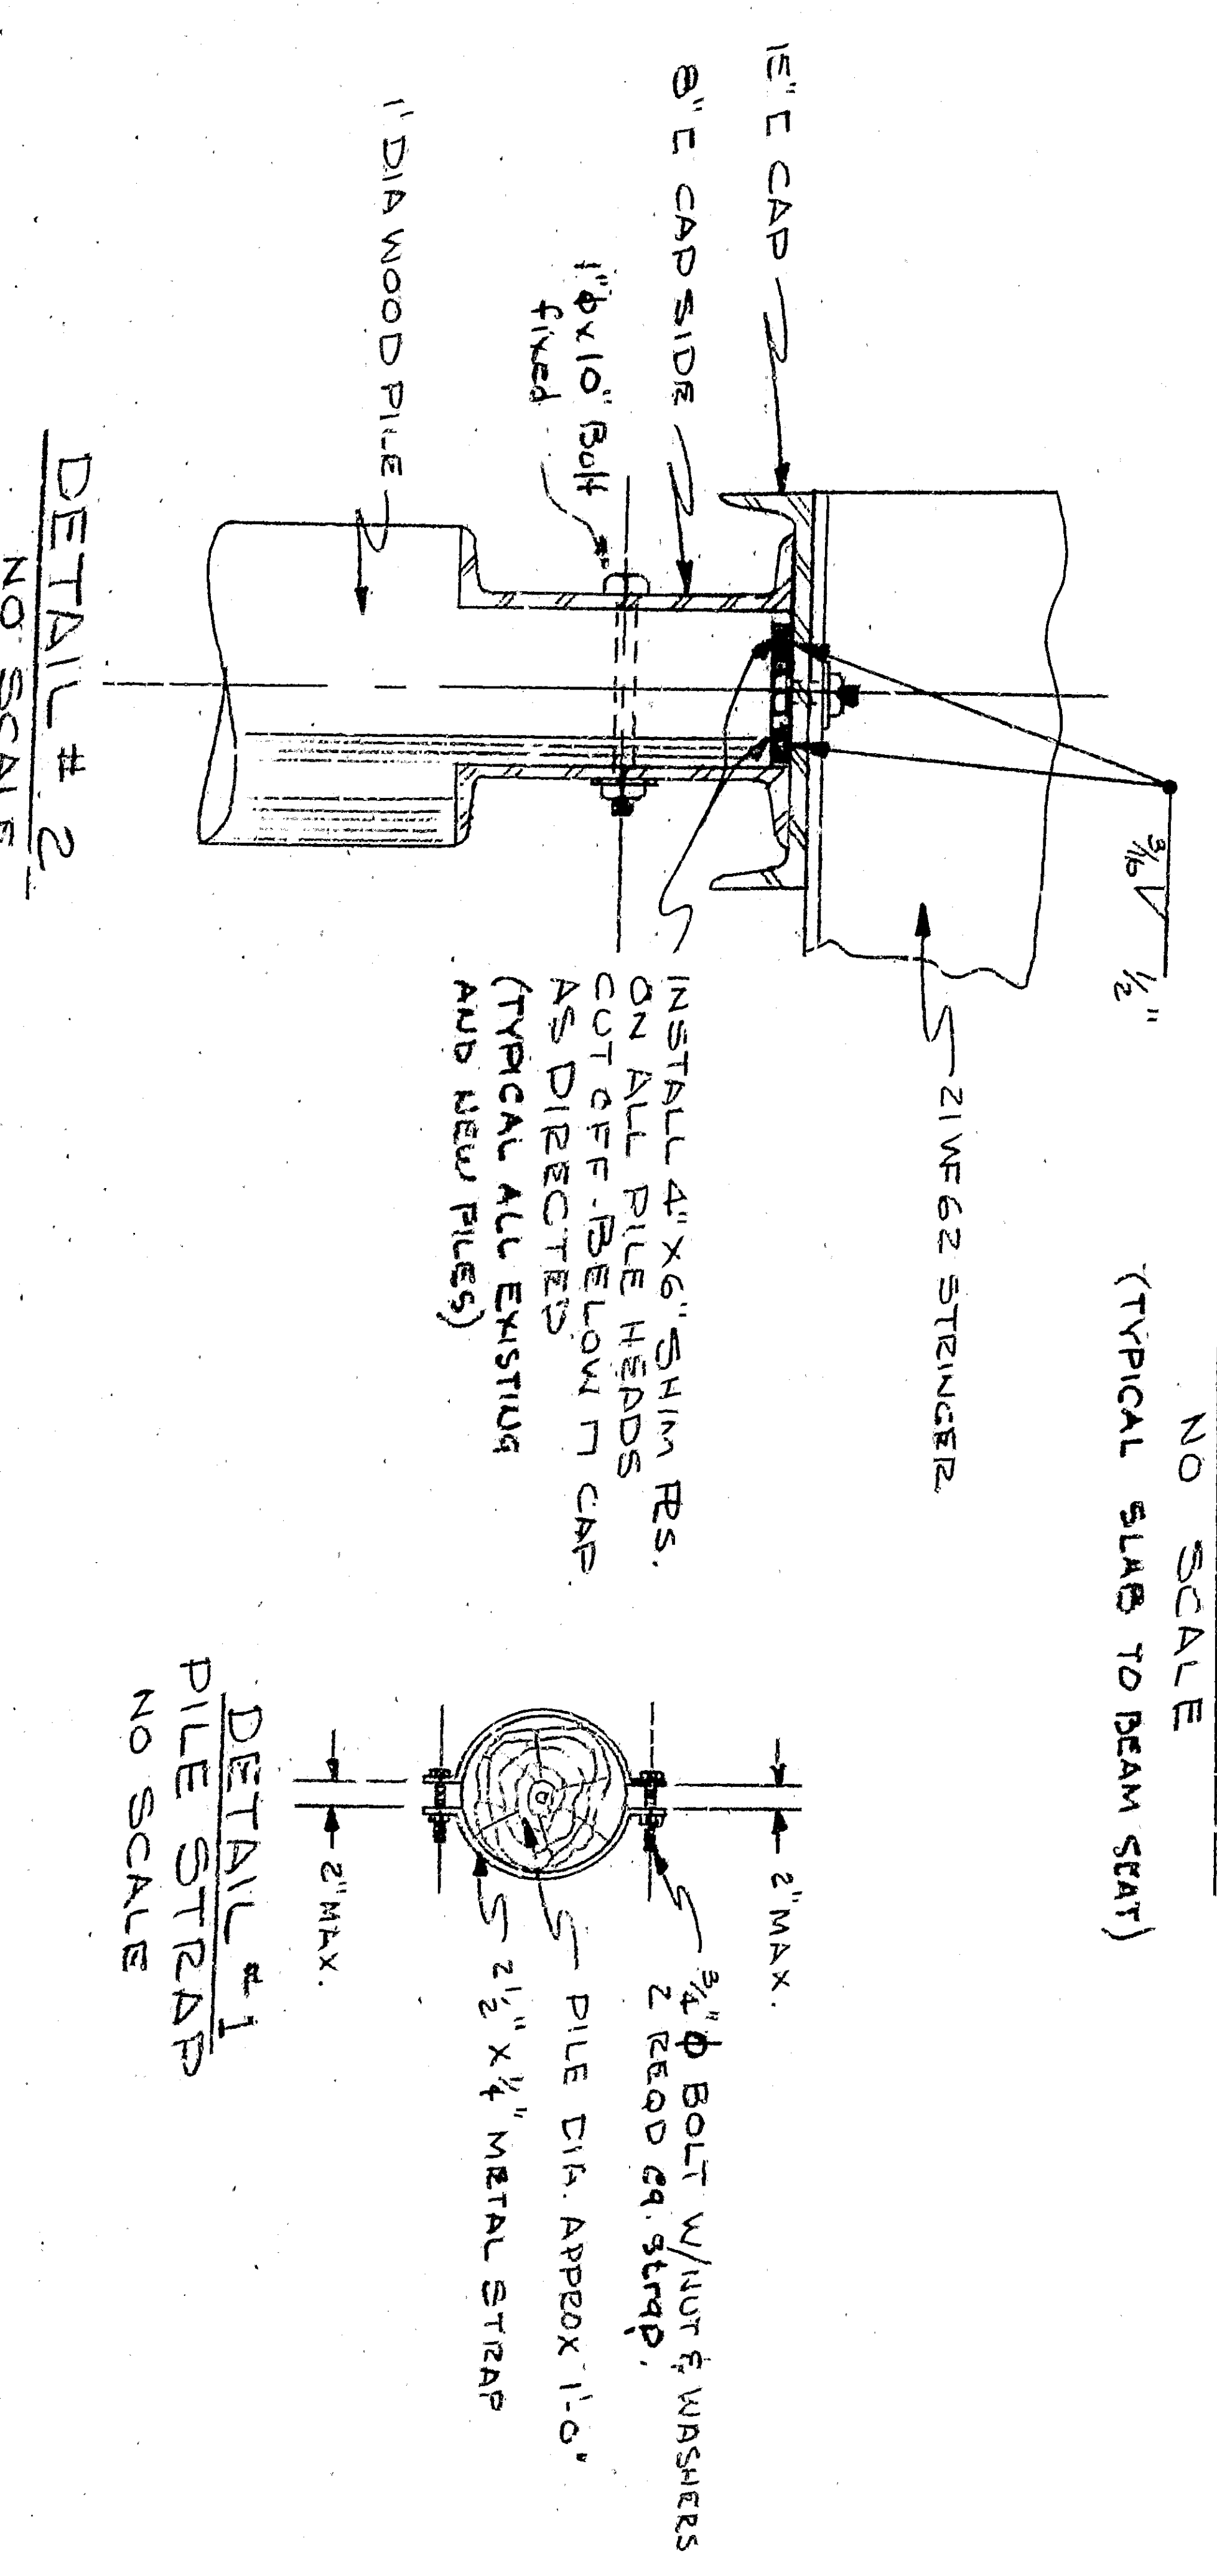 NO SCALE
(TYPICAL SLAB TO BEAM SEAT)
3/16 1/2"
21 WF 62 STRINGER
15" [ CAP
8" [ CAP SIDE
1"ϕ x 10" Bolt
fixed
1' DIA WOOD PILE
INSTALL 4" X 6" SHIM PLS.
ON ALL PILE HEADS
CUT OFF BELOW ⊓ CAP
AS DIRECTED
(TYPICAL ALL EXISTING
AND NEW PILES)
DETAIL # 2
NO SCALE
2" MAX.
3/4"ϕ BOLT W/NUT & WASHERS
2 REQD ea. strap.
PILE DIA. APPROX 1'-0"
2 1/2" X 1/4" METAL STRAP
2" MAX.
DETAIL # 1
PILE STRAP
NO SCALE